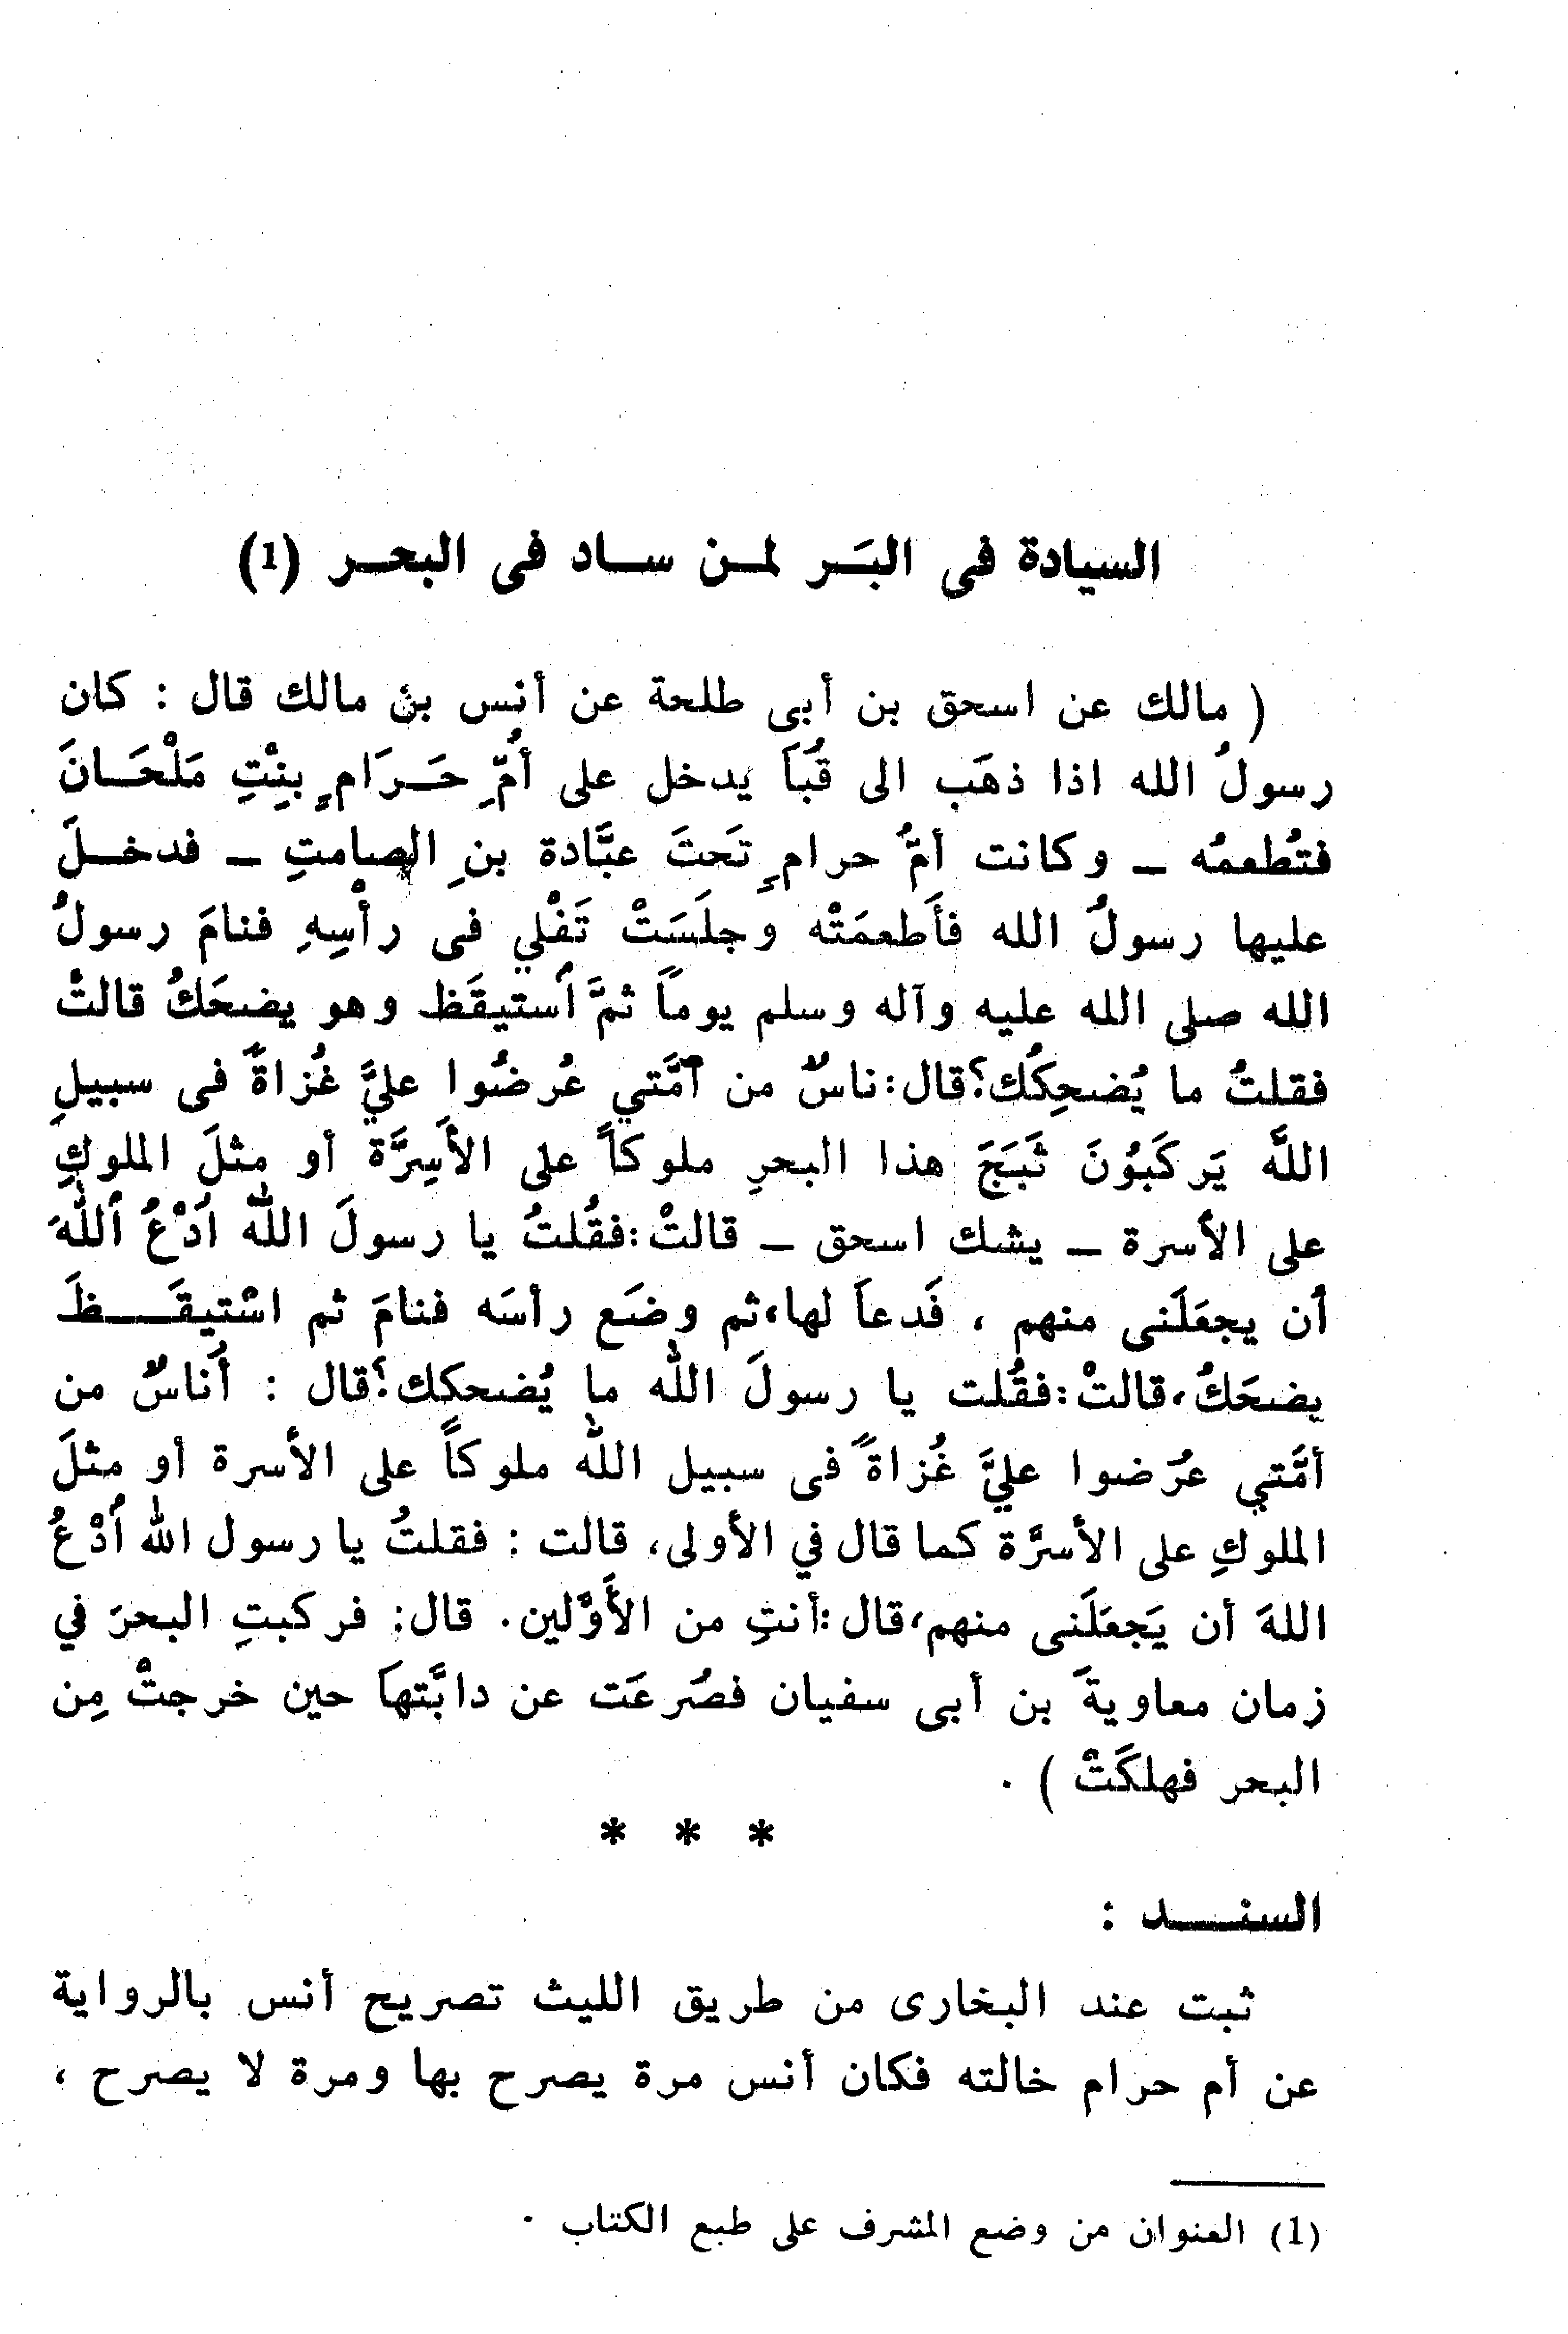 السيادة فى البَر لمن ساد فى البحر (1)
( مالك عن اسحق بن أبى طلحة عن أنس بن مالك قال : كان
رسولُ الله اذا ذهَب الى قُبَا يدخل على أُمِّ حَرَامٍ بِنْتِ مَلْحَانَ
فتُطعمُه ــ وكانت أمُّ حرامٍ تَحتَ عبَّادة بنِ الصامتِ ــ فدخلَ
عليها رسولُ الله فأَطعمَتْه وجلَسَتْ تَفْلي فى رأْسِهِ فنامَ رسولُ
الله صلى الله عليه وآله وسلم يوماً ثمَّ أستيقَظ وهو يضحَكُ قالتْ
فقلتُ ما يُضحِكُك؟قال:ناسٌ من أمَّتي عُرضُوا عليَّ غُزاةً فى سبيلِ
اللَّه يَركَبُونَ ثَبَجَ هذا البحرِ ملوكاً على الأَسِرَّة أو مثلَ الملوكِ
على الأسرة ــ يشك اسحق ــ قالتْ:فقُلتُ يا رسولَ الله اَدْعُ اَللهَ
أن يجعَلَنى منهم ، فَدعاَ لها،ثم وضَع رأسَه فنامَ ثم اسْتيقَظَ
يضحَكُ،قالتْ:فقُلت يا رسولَ الله ما يُضحكك؟قال : أُناسٌ من
أمَّتي عرُضوا عليَّ غُزاةً فى سبيل الله ملوكاً على الأسرة أو مثلَ
الملوكِ على الأسرَّة كما قال في الأولى، قالت : فقلتُ يا رسول الله أَدْعُ
اللهَ أن يَجعَلَنى منهم،قال:أنتِ من الأَوَّلين. قال: فركبتِ البحرَ في
زمان معاويةَ بن أبى سفيان فصُرعَت عن دابَّتهاَ حين خرجتْ مِن
البحر فهلكَتْ ) .
* * *
السند :
ثبت عند البخارى من طريق الليث تصريح أنس بالرواية
عن أم حرام خالته فكان أنس مرة يصرح بها ومرة لا يصرح ،
(1) العنوان من وضع المشرف على طبع الكتاب .